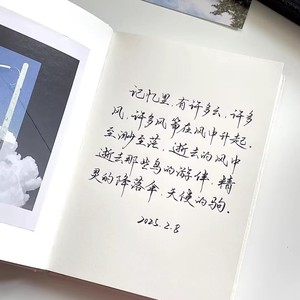 记忆里,有许多云,许多
风,许多风筝在风中升起,
至渺至茫,逝去的风中
逝去那些鸟的游伴,精
灵的降落伞,天使的驹。
2025.2.8